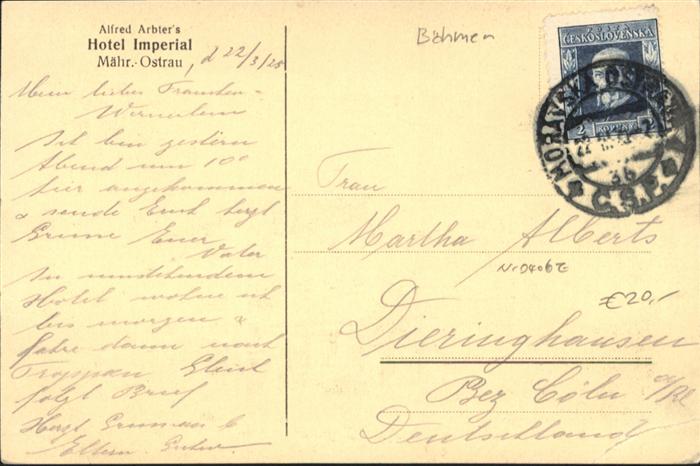 Alfred Arbter's
Hotel Imperial
Mähr.-Ostrau, d 22/3/25
Mein liebes
Ich bin gestern
Abend um 10°
hier angekommen
& sende Euch herzl
Grüsse Euer
Vater
In umstehendem
Hotel wohne ich
bis morgen &
fahre dann nach
Troppau
folgt Brief
Herzl
Eltern
Böhmen
POŠTA
ČESKOSLOVENSKÁ
2 KORUNY 2
MORAVSKÁ OSTRAVA
3b
Č.S.P.
Frau
Martha Alberts
€20,-
Dieringhausen
Bez Cöln a/Rh
Deutschland